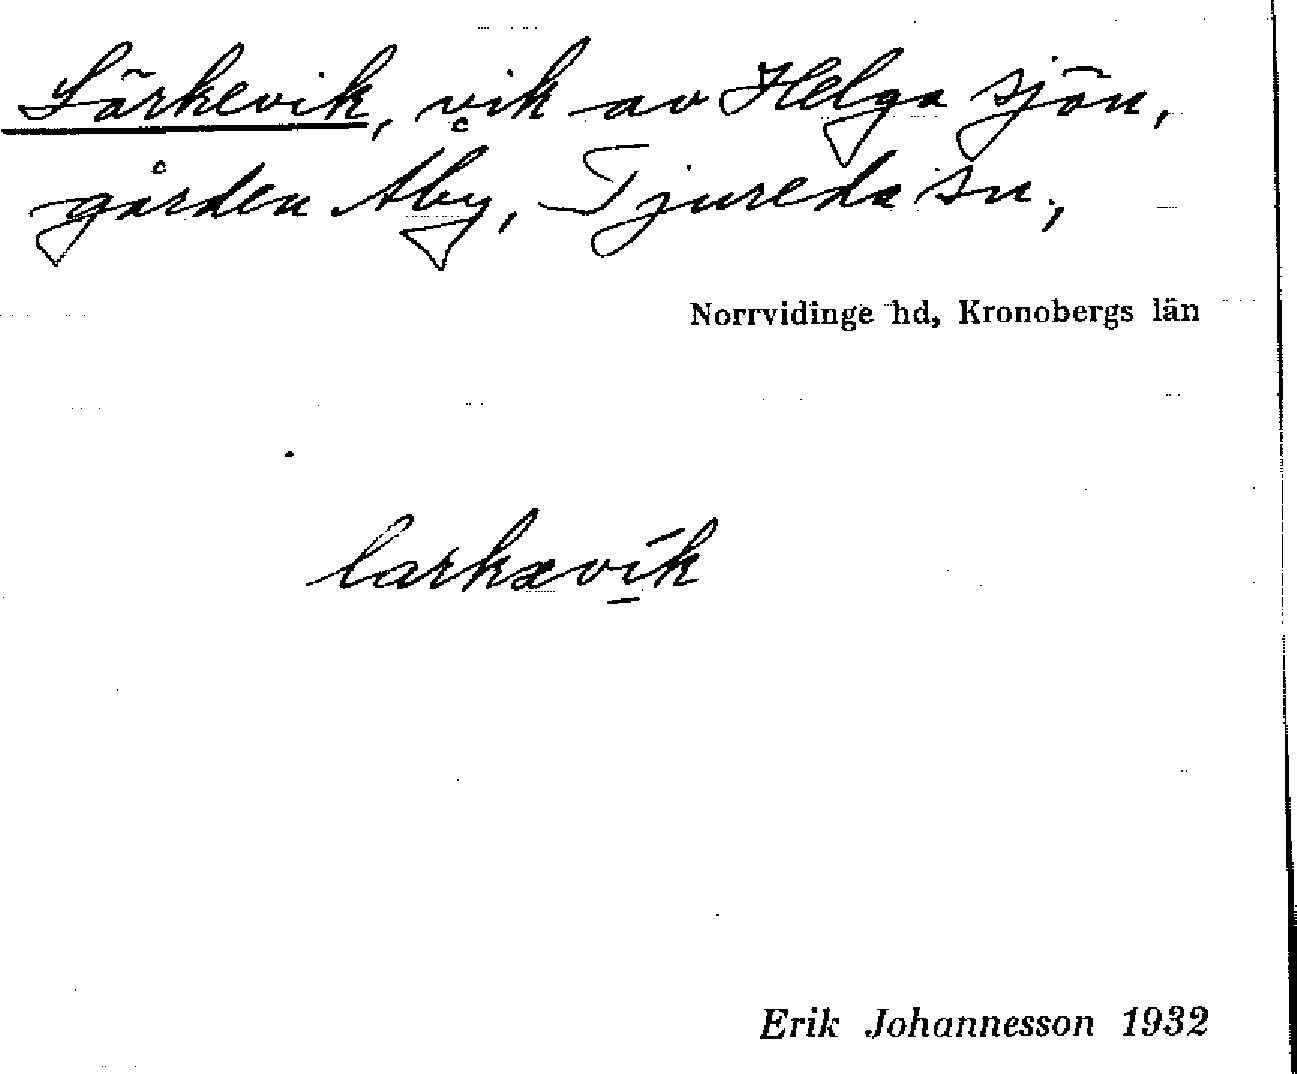 Lärkevik, vik av Helga sjön,
gården Åby, Tjureda sn,
Norrvidinge hd, Kronobergs län
larkævik
Erik Johannesson 1932